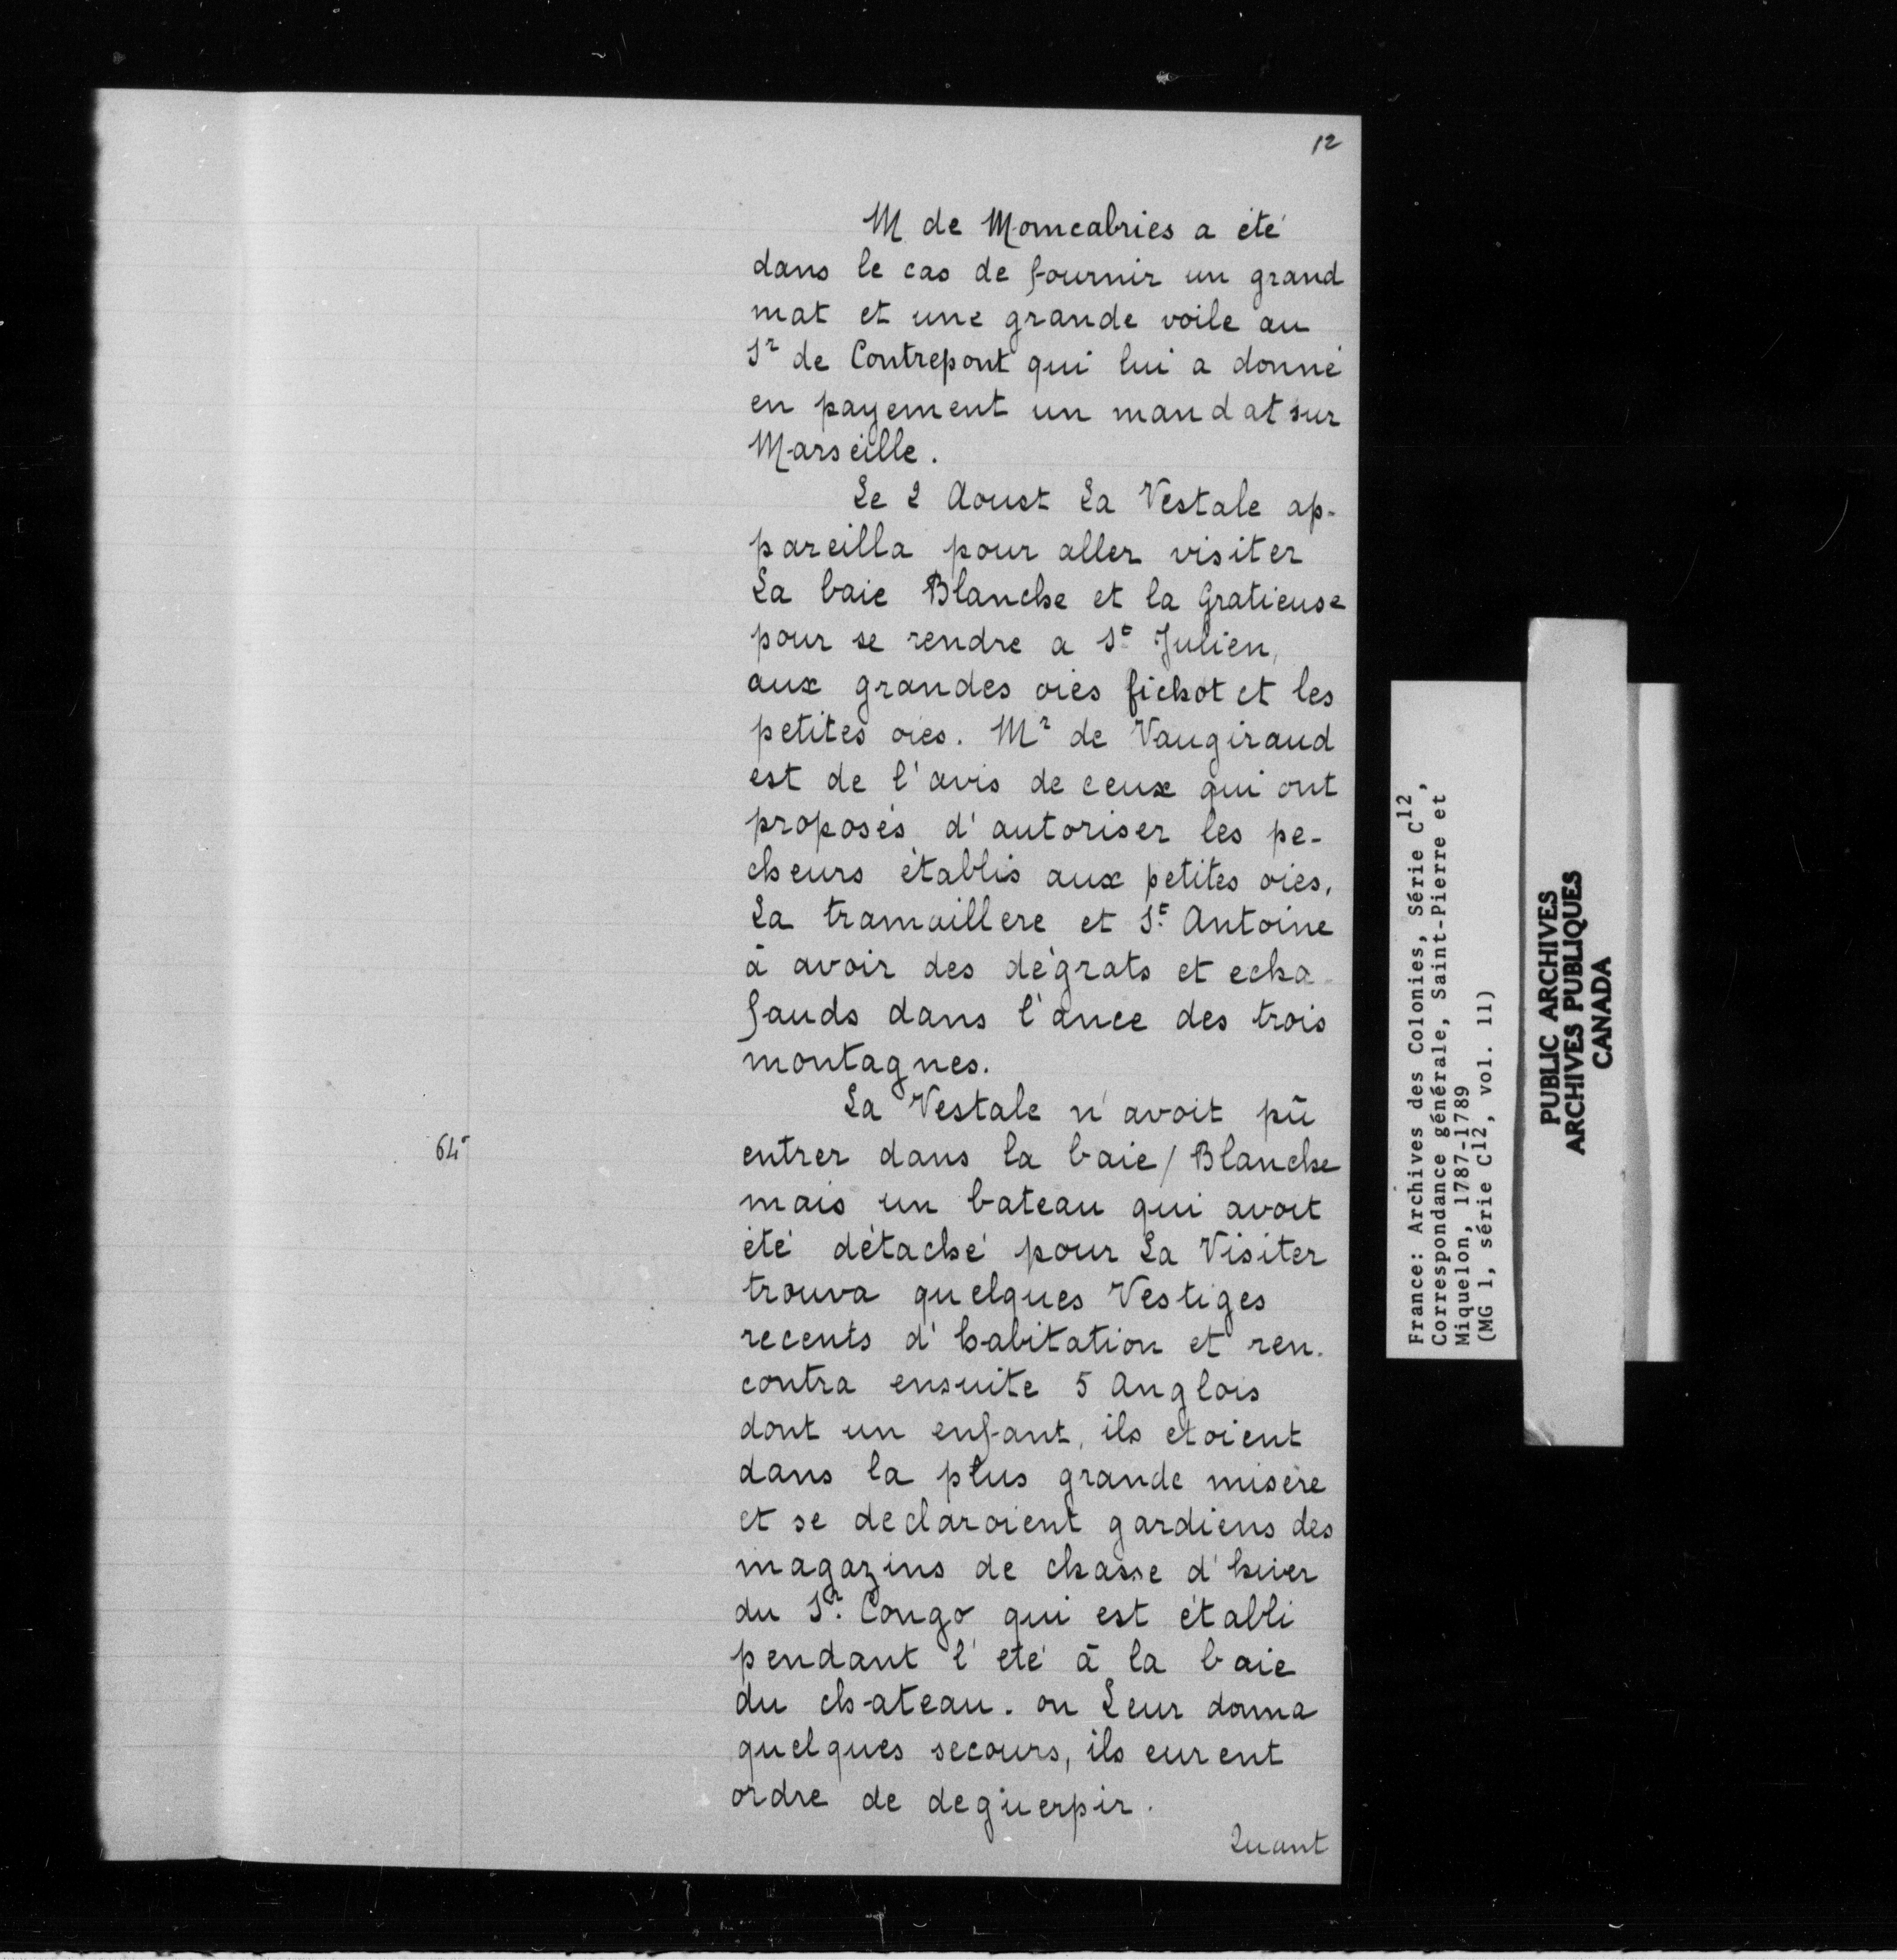 12
M de Momcabriés a été
dans le cas de fournir un grand
mat et une grande voile au
Sr de Contrepont qui lui a donné
en payement un mandat sur
Marseille.
Le 2 Aoust La Vestale ap-
pareilla pour aller visiter
La baie Blanche et la Gratieuse
pour se rendre a St Julien,
aux grandes oies fichot et les
petites oies. Mr de Vaugiraud
est de l'avis de ceux qui ont
proposés d'autoriser les pe-
cheurs établis aux petites oies,
La tramaillere et St Antoine
à avoir des dégrats et echa-
fauds dans l'ance des trois
montagnes.
La Vestale n'avoit pû
64
entrer dans la baie / Blanche
mais un bateau qui avoit
été détaché pour La Visiter
trouva quelques Vestiges
recents d'habitation et ren-
contra ensuite 5 Anglois
dont un enfant, ils etoient
dans la plus grande misère
et se declaroient gardiens des
magazins de chasse d'hiver
du Sr. Congo qui est établi
pendant l'eté à la baie
du chateau. on Leur donna
quelques secours, ils eurent
ordre de deguerpir.
Quant
France: Archives des Colonies, Série C12,
Correspondance générale, Saint-Pierre et
Miquelon, 1787-1789
(MG 1, série C12, vol. 11)
PUBLIC ARCHIVES
ARCHIVES PUBLIQUES
CANADA